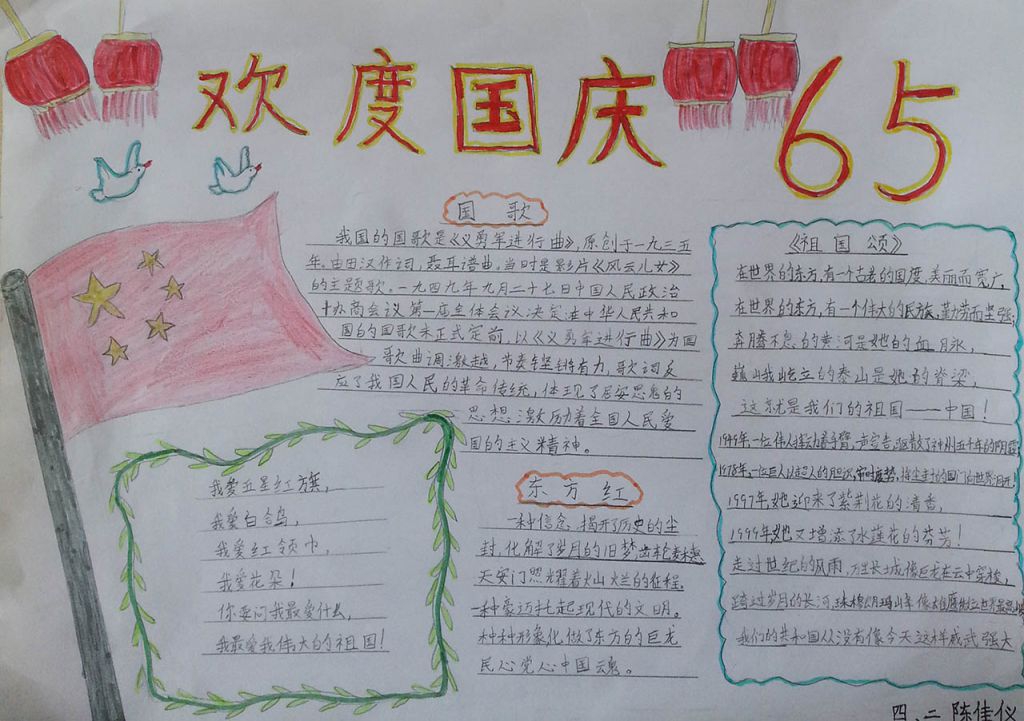 欢度国庆 65
国歌
我国的国歌是《义勇军进行曲》,原创于一九三五
年.由田汉作词,聂耳谱曲,当时是影片《风云儿女》
的主题歌.一九四九年九月二十七日中国人民政治
协商会议第一届全体会议决定进中华人民共和
国的国歌未正式定前,以《义勇军进行曲》为国
歌.歌曲调激越,节奏坚锵有力,歌词反
应了我国人民的革命传统,体现了居安思危的
思想;激励着全国人民爱
国的主义精神。
东方红
一种信念,揭开了历史的尘
封,化解了岁月的旧梦,
天安门照耀着火山火兰的征程.
一种豪迈托起现代的文明。
种种形象化,做了东方的巨龙
民心党心中国云魂。
我爱五星红旗,
我爱白鸽,
我爱红领巾,
我爱花朵!
你要问我最爱什么,
我最爱我伟大的祖国!
《祖国颂》
在世界的东方,有一个古老的国度,美丽而宽广,
在世界的东方,有一个伟大的民族,勤劳而坚强;
奔腾不息的黄河是她的血脉,
巍峨屹立的泰山是她的脊梁,
这就是我们的祖国——中国!
1949年,一位伟人挥动着手臂,一声宣告,驱散了神州五千年的阴霾
1978年,一位巨人以超人的胆识,审时度势,将尘封的国门向世界打开
1997年,她迎来了紫荆花的清香,
1999年她又增添了水莲花的芬芳!
走过世纪的风雨,万里长城像巨龙在云中穿梭,
跨过岁月的长河,珠穆朗玛峰像雄鹰
我们的共和国从没有像今天这样威武强大
四、二 陈佳仪